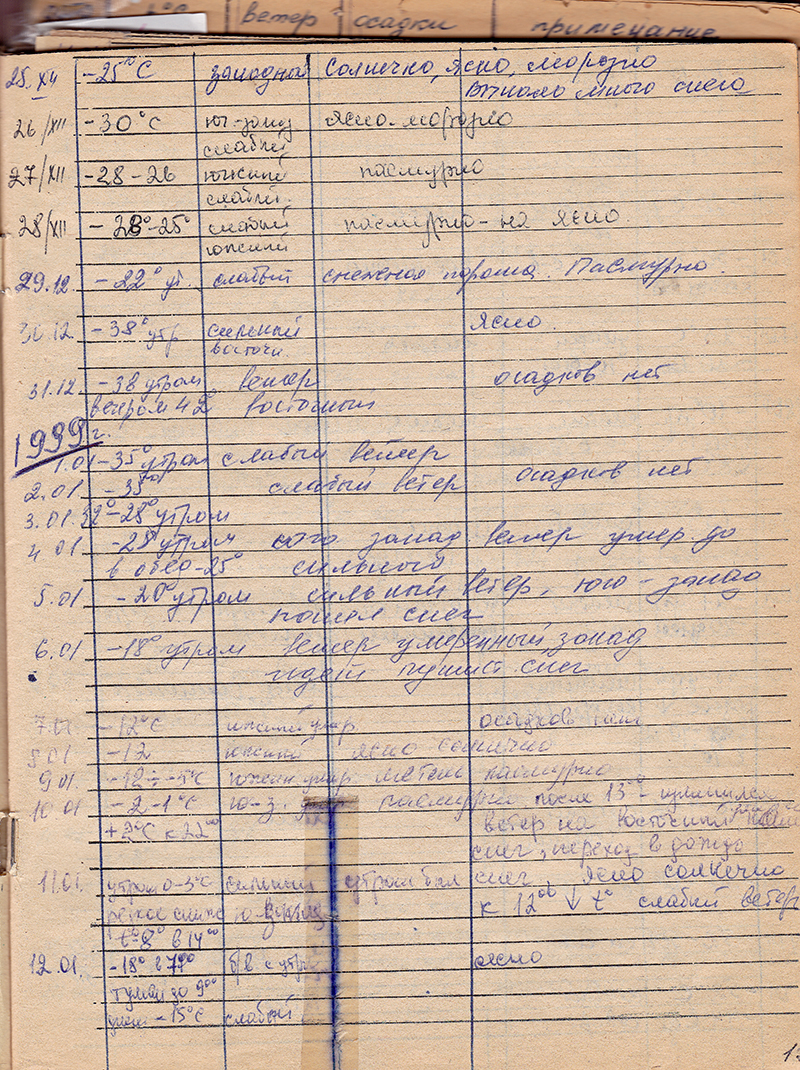 ветер осадки примечание
25.XII -25°C западный солнечно, ясно, морозно
выпало много снега
26/XII -30°C юг-запад ясно. морозно
слабый
27/XII -28-26 южный пасмурно
слабый.
28/XII -28°-25° слабый пасмурно - на ясно
южный
29.12. -22° ут. слабый снежная пороша. Пасмурно.
30.12 -38° утр сильный ясно.
восточн
31.12. -38 утром ветер осадков нет
вечером 42 восточный
1999 г.
1.01 -35° утром слабый ветер
2.01. -35° слабый ветер осадков нет
3.01. 32°-28° утром
4 01 -28° утром юго запад ветер умер до
в обед -25° сильного
5.01 -20° утром сильный ветер, юго-запад
пошел снег
6.01 -18° утром ветер умеренный, запад
идет пушист снег
7.01 -12°C южный умер осадков
8.01 -12 южный ясно солнечно
9.01. -12 ÷ -5°C южн. умер. метель пасмурно
10 01 -2-1°C ю-з. пасмурно после 15°° -
+2°C к 22°° ветер на восточный
снег, переход в дождь
11.01. утром 0-3°C сильный утром был снег, ясно солнечно
резкое к 12°° ↓ t° слабый ветер
t°-8° в 14°°
12.01. -18° в 7°° б/в с утра ясно
туман до 9°°
днем -15°C слабый